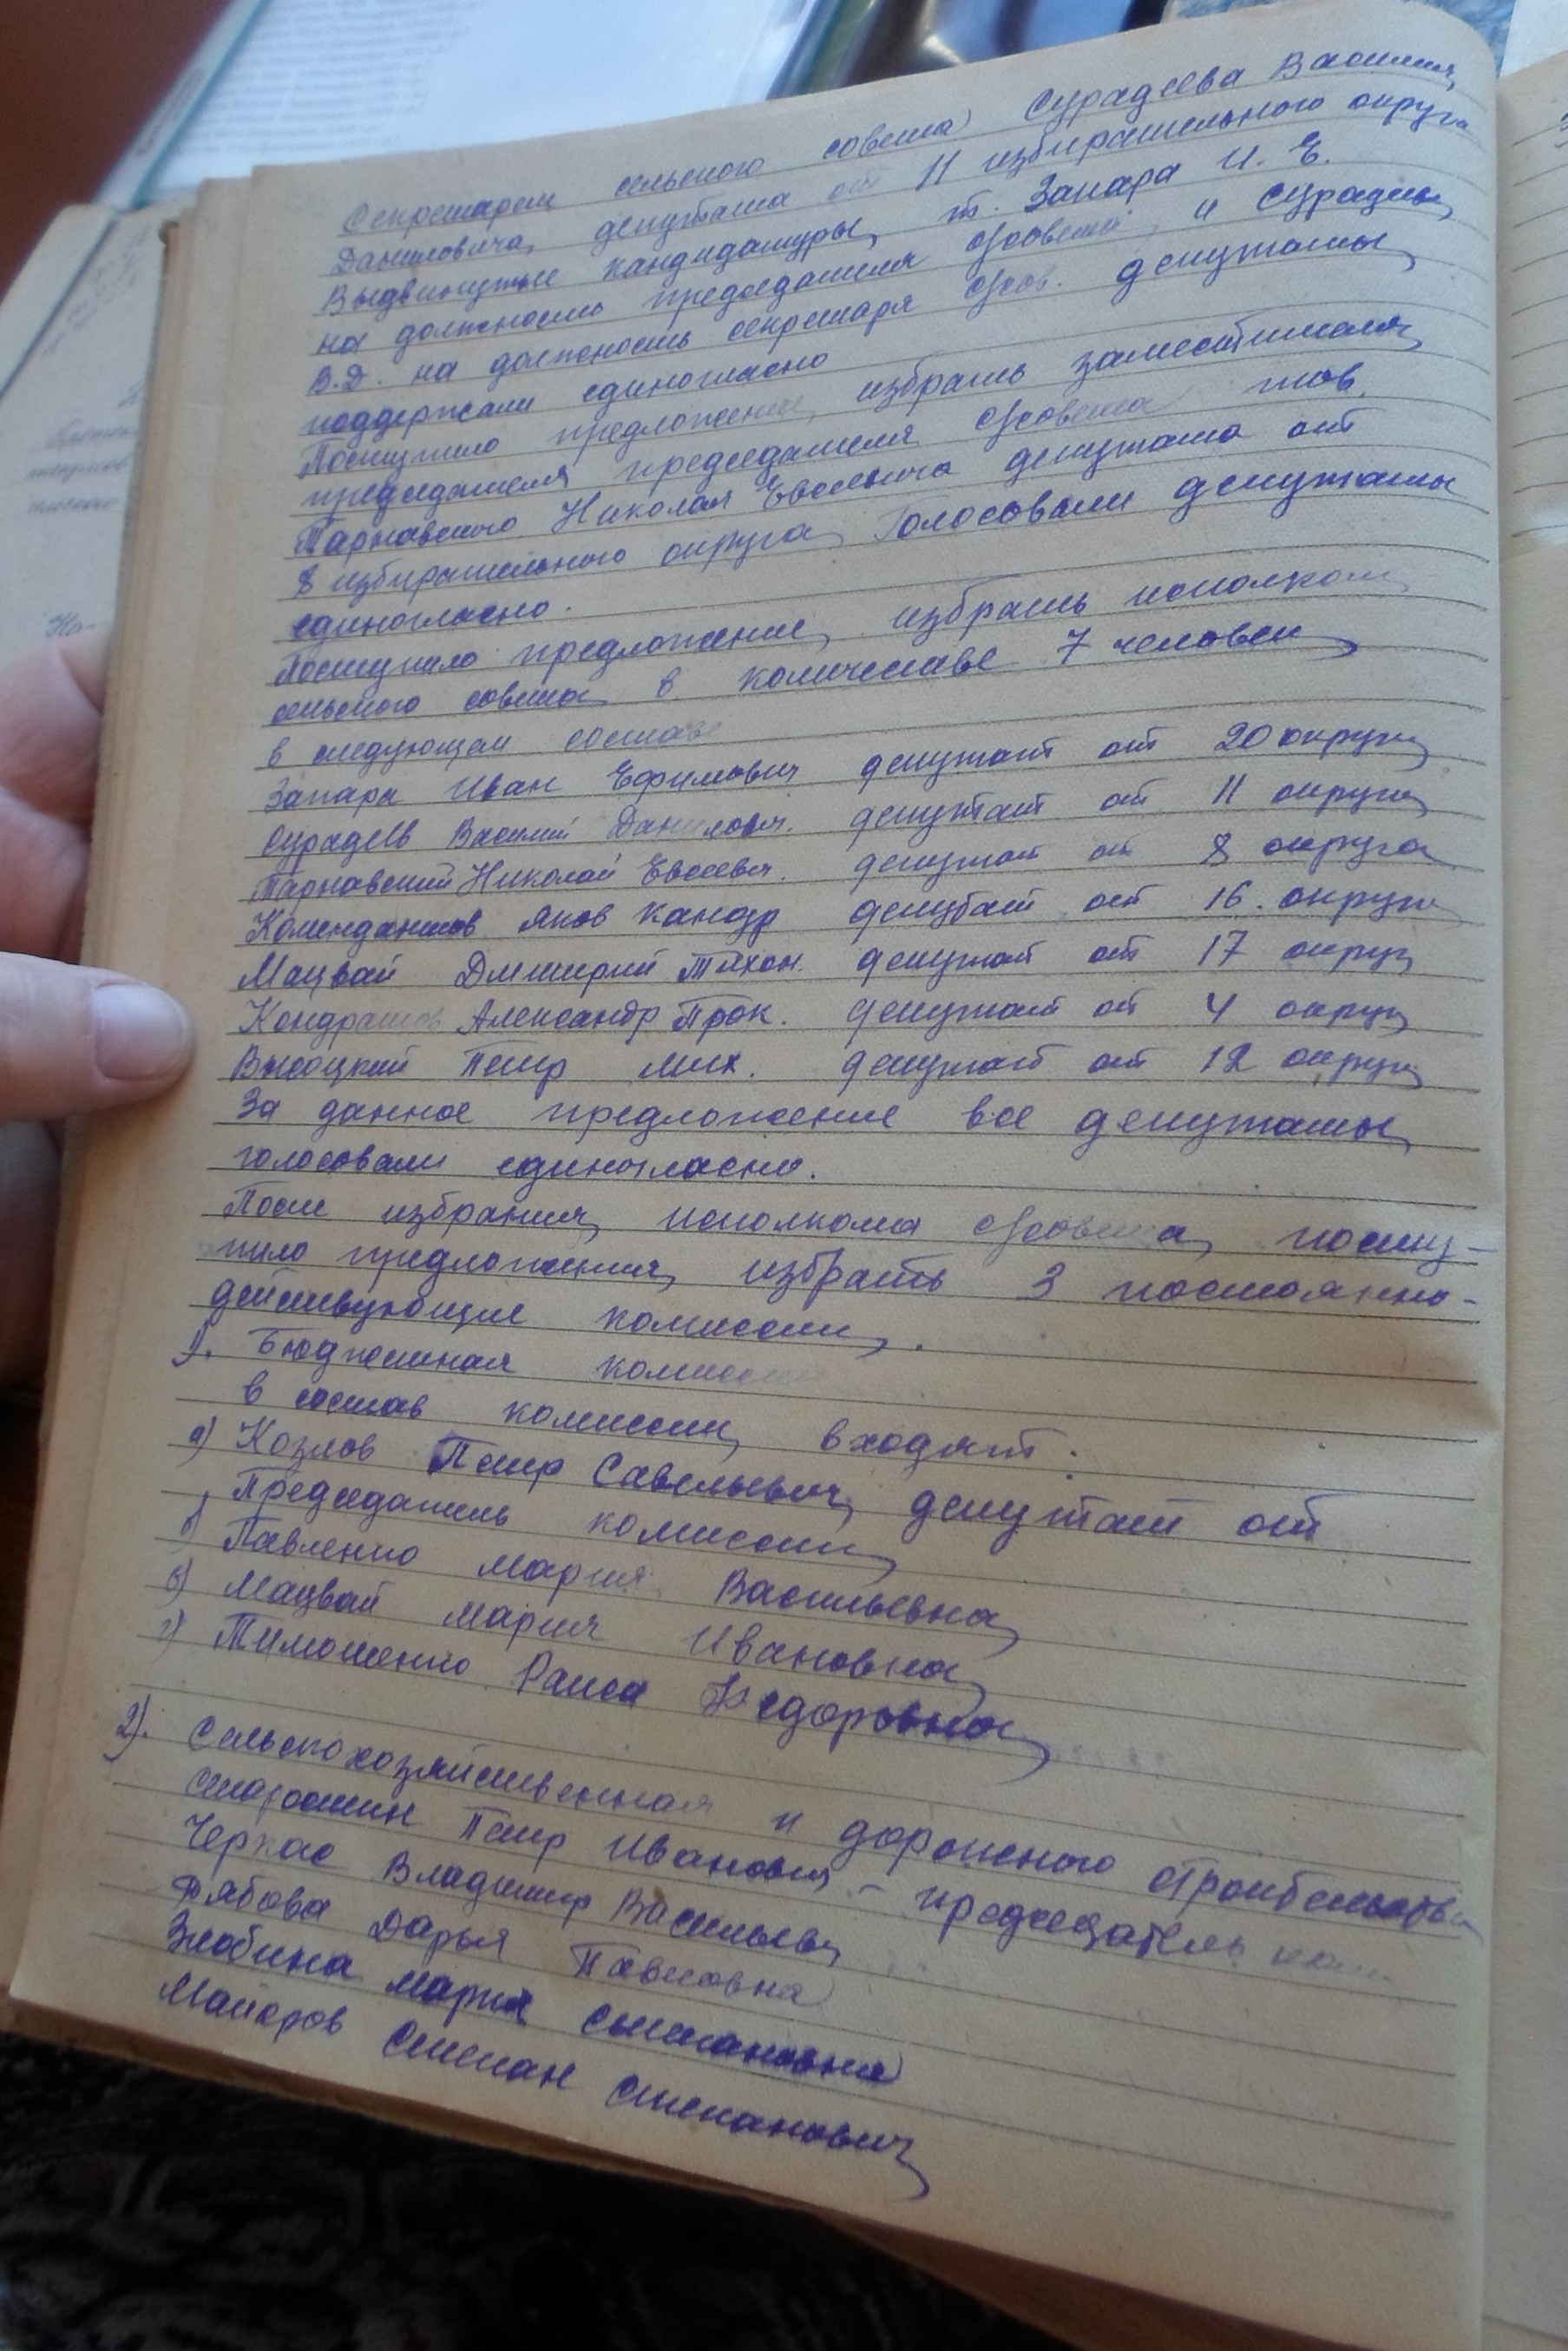 Секретарем сельского совета Сурадеева Василия
Даниловича, депутата от 11 избирательного округа
Выдвинутые кандидатуры т. Запара И. Е.
на должность председателя с/совета и Сурадеев
В.Д. на должность секретаря с/сов. депутаты
поддержали единогласно
Поступило предложение, избрать заместителя
председателя председателя с/совета тов.
Тарнавского Николая Евсеевича депутата от
8 избирательного округа Голосовали депутаты
единогласно.
Поступило предложение, избрать исполком
сельского совета в количестве 7 человек
в следующем составе
Запара Иван Ефимович депутат от 20 округа
Сурадеев Василий Данилович. депутат от 11 округа
Тарнавский Николай Евсеевич. депутат от 8 округа
Комендантов Яков Кандр депутат от 16. округа
Мацвай Дмитрий Тихон. депутат от 17 округ
Кондрашов Александр Прок. депутат от 4 округ
Высоцкий Петр Мих. депутат от 12 округ
За данное предложение все депутаты
голосовали единогласно.
После избрания исполкома с/совета, посту-
пило предложения, избрать 3 постоянно-
действующие комиссии.
1). Бюджетная комиссия
в состав комиссии входят:
а) Козлов Петр Савельевич, депутат от
Председатель комиссии
б) Павленко Мария Васильевна
в) Мацвай Мария Ивановна
г) Тимошенко Раиса Федоровна
2). Сельскохозяйственная и дорожного строительства
Петр Иванович - председатель ком.
Черкас Владимир Васильев
Дарья Павловна
Злобина Мария Степановна
Майоров Степан Степанович